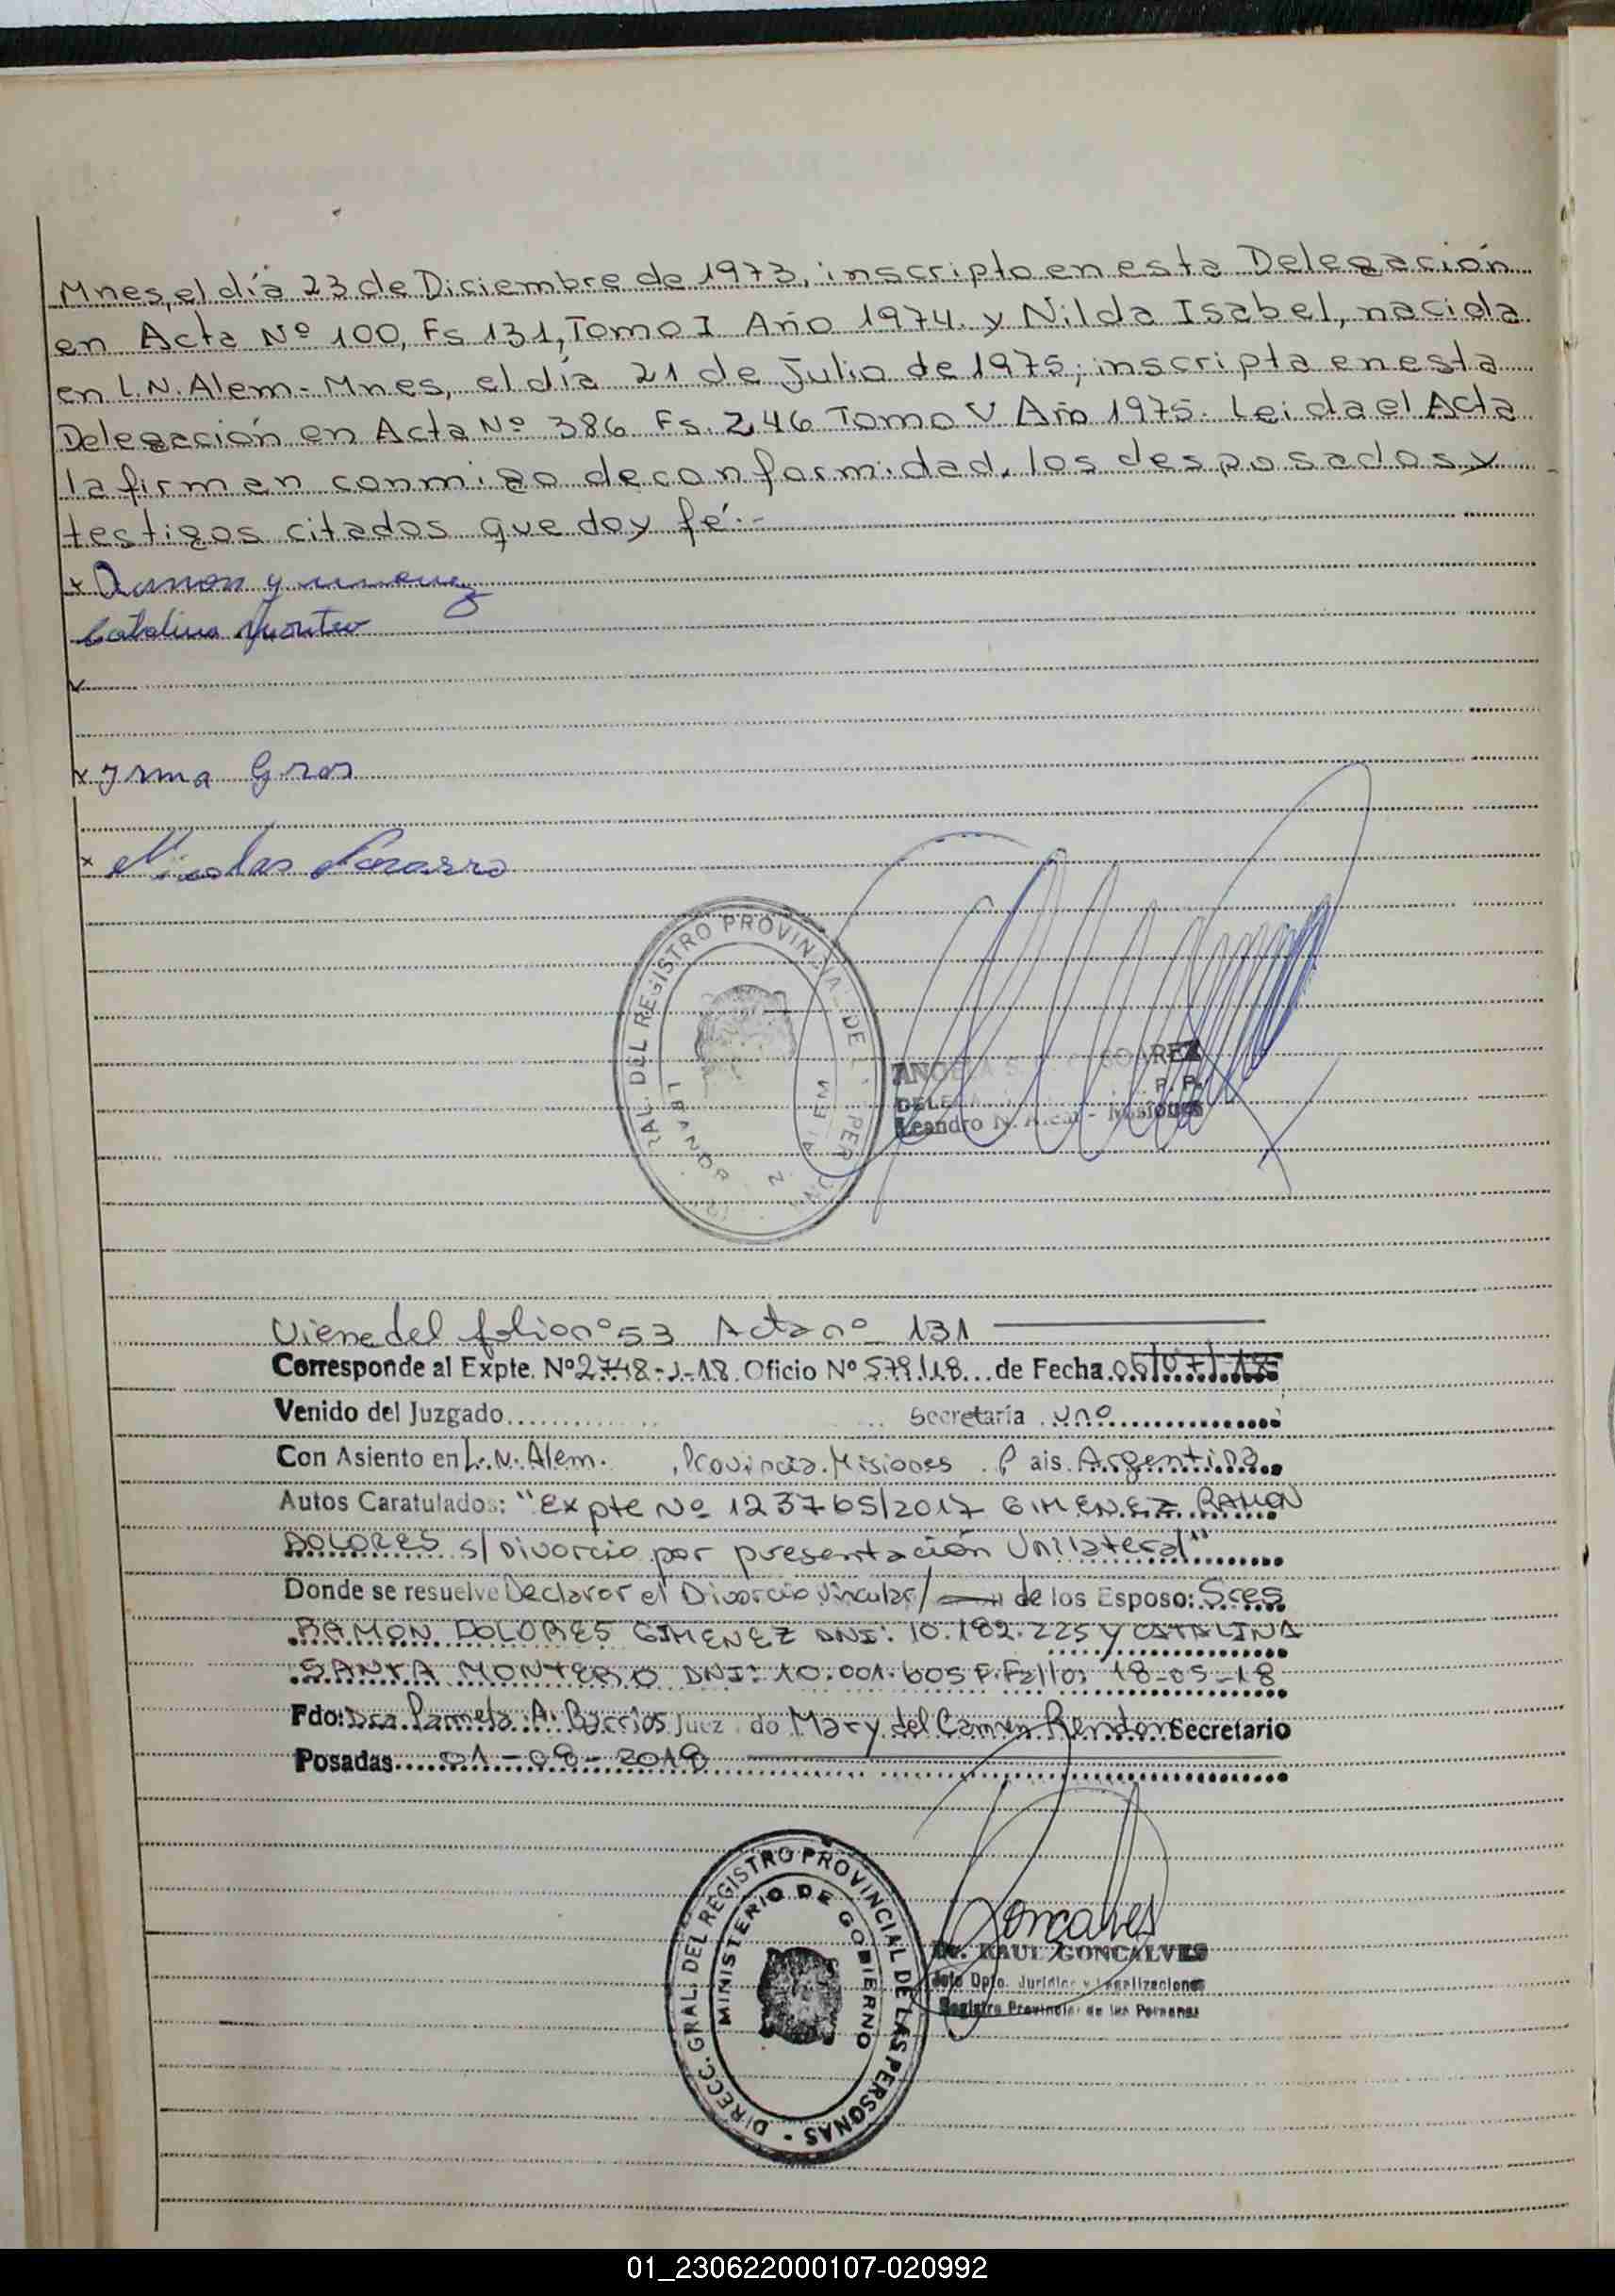 Mnes, el día 23 de Diciembre de 1973, inscripto en esta Delegación
en Acta Nº 100, Fs 131, Tomo I Año 1974. y Nilda Isabel, nacida
en L.N. Alem - Mnes, el día 21 de Julio de 1975; inscripta en esta
Delegación en Acta Nº 386 Fs. 246 Tomo V Año 1975. Leida el Acta
la firman conmigo de conformidad, los desposados y
testigos citados que doy fé.-
x Ramon
Catalina
x Irma Gros
x Nicolas
RAL. DEL REGISTRO PROVINCIAL DE
ALEM
SOAREZ
P. P.
DELE
Leandro N. Alem - Misiones
Viene del folio nº 53 Acta nº 131
Corresponde al Expte. Nº 2748-J-18 Oficio Nº 579/18 de Fecha 05/07/18
Venido del Juzgado Secretaría uno
Con Asiento en L. N. Alem. Provincia Misiones País Argentina
Autos Caratulados: "Expte Nº 123765/2017 GIMENEZ RAMON
DOLORES s/ Divorcio por presentación Unilateral"
Donde se resuelve Declarar el Divorcio Vincular/ de los Esposo: Sres
RAMON DOLORES GIMENEZ DNI: 10.182.225 y CATALINA
SANTA MONTERO DNI: 10.001.605 F. Fallo: 18-05-18
Fdo: Dra Pamela A. Barrios Juez do Mary del Carmen Rendon Secretario
Posadas 01-08-2018
DIRECC. GRAL. DEL REGISTRO PROVINCIAL DE LAS PERSONAS -
MINISTERIO DE GOBIERNO
Goncalves
Dr. RAUL GONCALVES
Jefe Dpto. Jurídico y Legalizaciones
Registro Provincial de las Personas
01_230622000107-020992